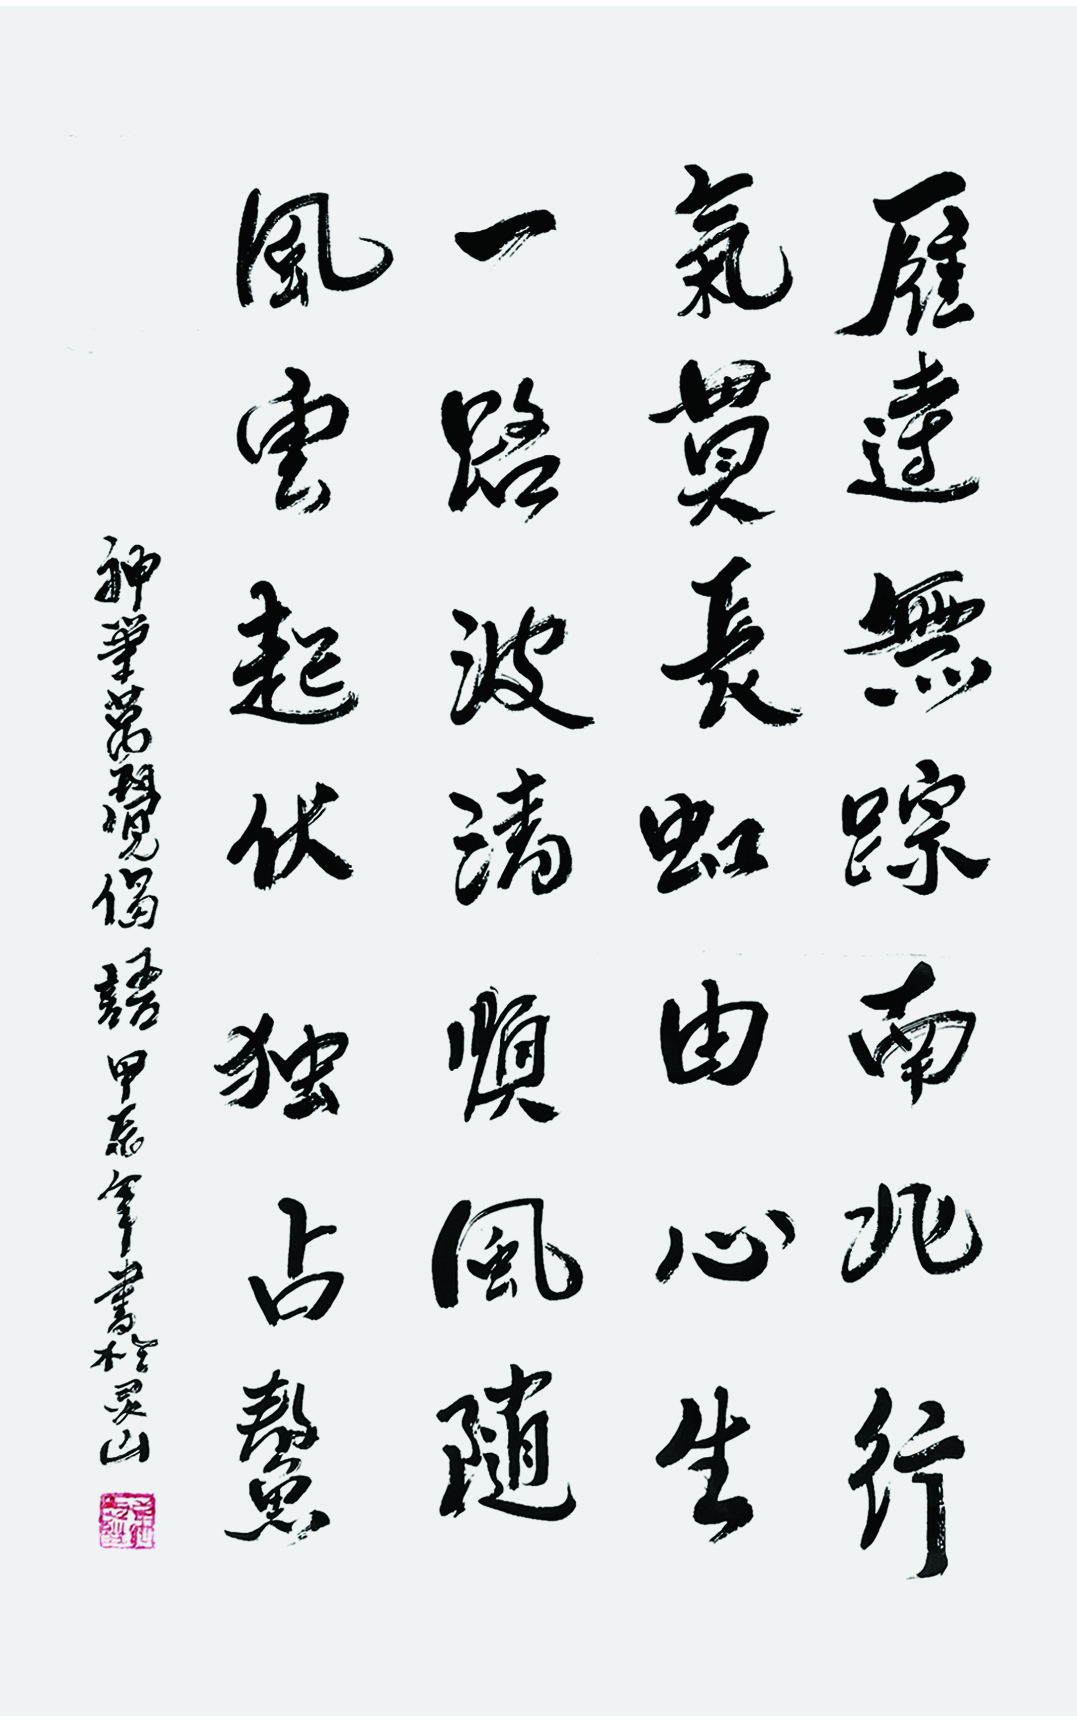 雁達無踪南北行
氣貫長虹由心生
一路波濤順風隨
風雲起伏独占鰲
神筆萬覺偈語甲辰年書於灵山